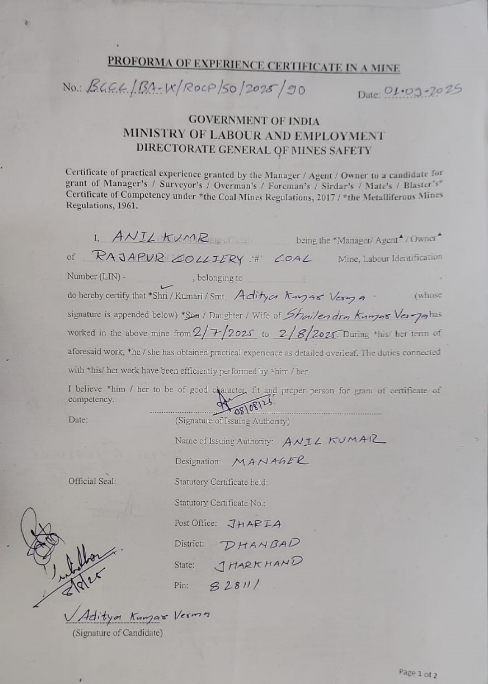 PROFORMA OF EXPERIENCE CERTIFICATE IN A MINE
No.: BCCL/BA-IX/ROCP/SO/2025/90 Date: 01-09-2025
GOVERNMENT OF INDIA
MINISTRY OF LABOUR AND EMPLOYMENT
DIRECTORATE GENERAL OF MINES SAFETY
Certificate of practical experience granted by the Manager / Agent / Owner to a candidate for
grant of Manager's / Surveyor's / Overman's / Foreman's / Sirdar's / Mate's / Blaster's*
Certificate of Competency under *the Coal Mines Regulations, 2017 / *the Metalliferous Mines
Regulations, 1961.
I, ANIL KUMR being the *Manager/ Agent* / Owner*
of RAJAPUR COLLIERY COAL Mine, Labour Identification
Number (LIN) - , belonging to
do hereby certify that *Shri / Kumari / Smt. Aditya Kumar Verma (whose
signature is appended below) *Son / Daughter / Wife of Shailendra Kumar Verma has
worked in the above mine from 2/7/2025 to 2/8/2025 During *his/ her term of
aforesaid work, *he / she has obtained practical experience as detailed overleaf. The duties connected
with *his/ her work have been efficiently performed by *him / her.
I believe *him / her to be of good character, fit and proper person for grant of certificate of
competency.
08/08/25
Date: (Signature of Issuing Authority)
Name of Issuing Authority: ANIL KUMAR
Designation: MANAGER
Official Seal: Statutory Certificate held:
Statutory Certificate No.:
Post Office: JHARIA
District: DHANBAD
State: JHARKHAND
Pin: 828111
8/8/25
Aditya Kumar Verma
(Signature of Candidate)
Page 1 of 2